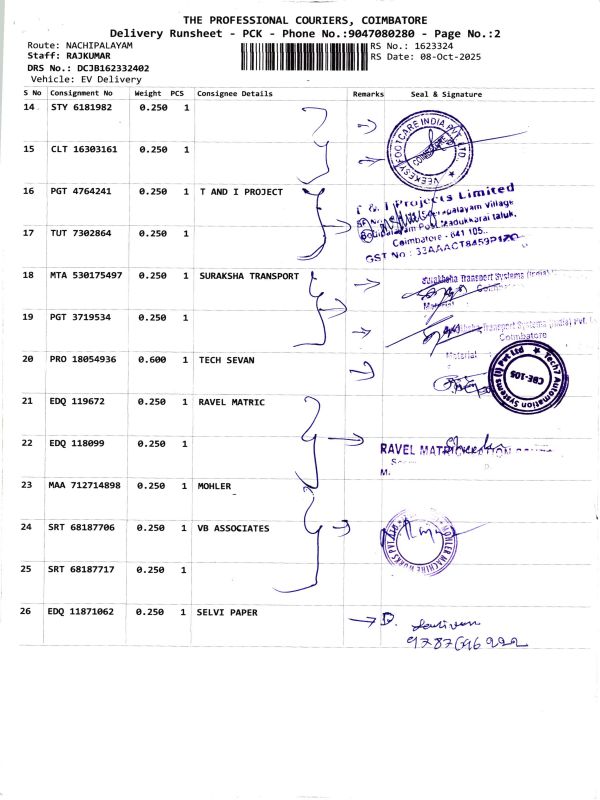 THE PROFESSIONAL COURIERS, COIMBATORE
Delivery Runsheet - PCK - Phone No.:9047080280 - Page No.:2
Route: NACHIPALAYAM
Staff: RAJKUMAR
DRS No.: DCJB162332402
Vehicle: EV Delivery
RS No.: 1623324
RS Date: 08-Oct-2025
S No Consignment No Weight PCS Consignee Details Remarks Seal & Signature
14 STY 6181982 0.250 1
VEEKESY FOOTCARE INDIA PVT LTD.
15 CLT 16303161 0.250 1
16 PGT 4764241 0.250 1 T AND I PROJECT
T & I Projects Limited
Village
Post, Madukkarai taluk,
Coimbatore - 641 105.
GST No : 33AAACT8459P1ZO
17 TUT 7302864 0.250 1
18 MTA 530175497 0.250 1 SURAKSHA TRANSPORT
Suraksha Transport Systems (India)
19 PGT 3719534 0.250 1
Transport Systems (India) Pvt. L
Coimbatore
Material
20 PRO 18054936 0.600 1 TECH SEVAN
Tech7 Automation Systems (I) Pvt Ltd
CBE-105
21 EDQ 119672 0.250 1 RAVEL MATRIC
22 EDQ 118099 0.250 1
RAVEL MATRIC
23 MAA 712714898 0.250 1 MOHLER
24 SRT 68187706 0.250 1 VB ASSOCIATES
MOHLER MACHINE WORKS P LTD
25 SRT 68187717 0.250 1
26 EDQ 11871062 0.250 1 SELVI PAPER
D.